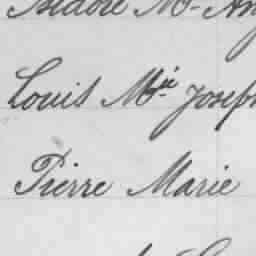 Isidore M.
Louis M.ie Joseph
Pierre Marie